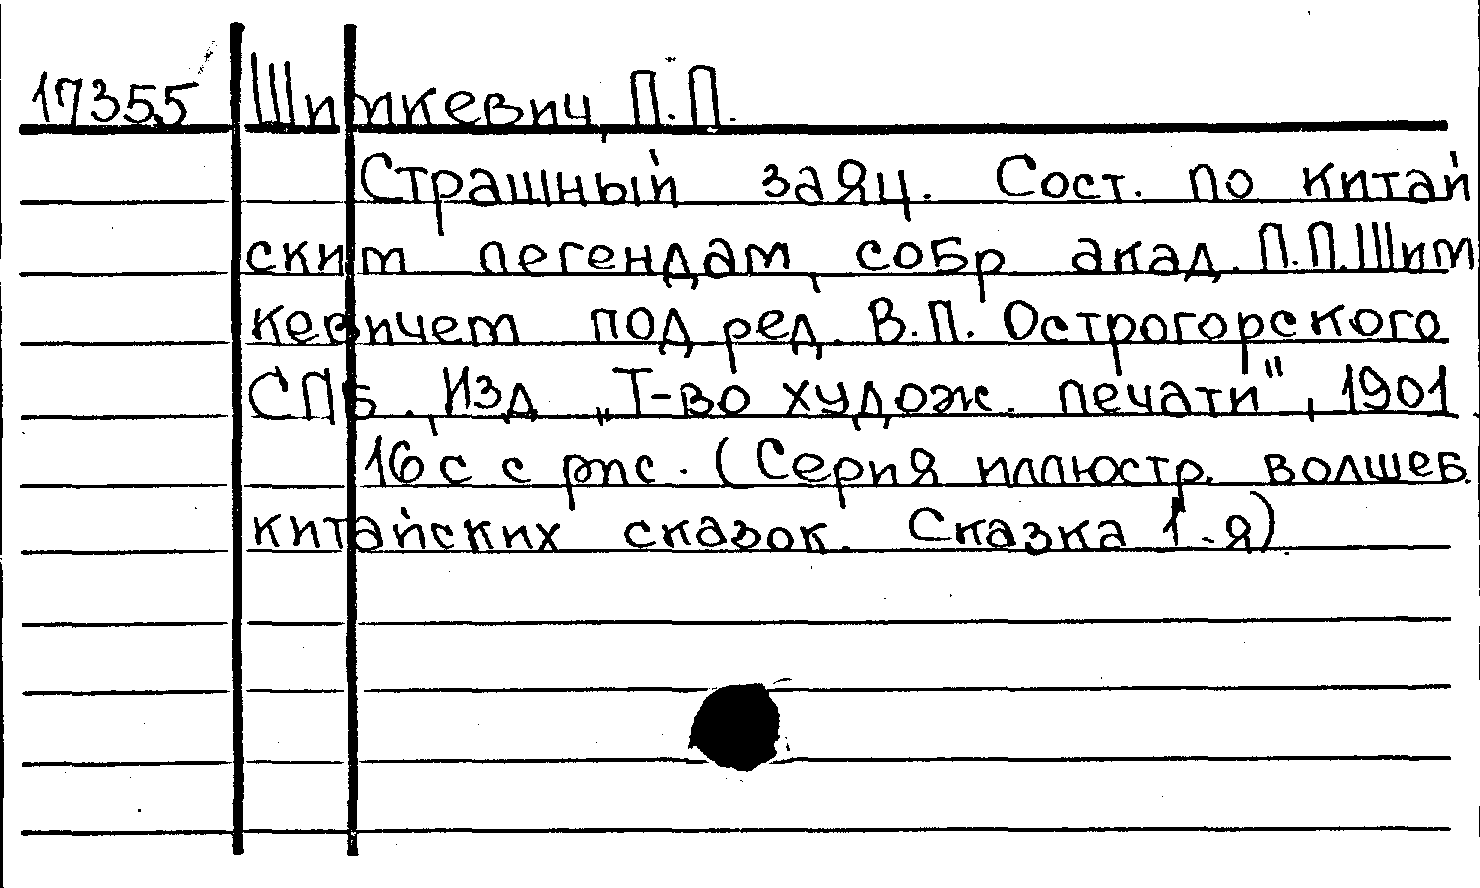 17355 Шимкевич, П.П.
Страшный заяц. Сост. по китай
ским легендам, собр. акад. П.П.Шим
кевичем под ред. В.П. Острогорского
СПБ., Изд. „Т-во худож. печати", 1901.
16 с с рис. (Серия иллюстр. волшеб.
китайских сказок. Сказка 1-я).